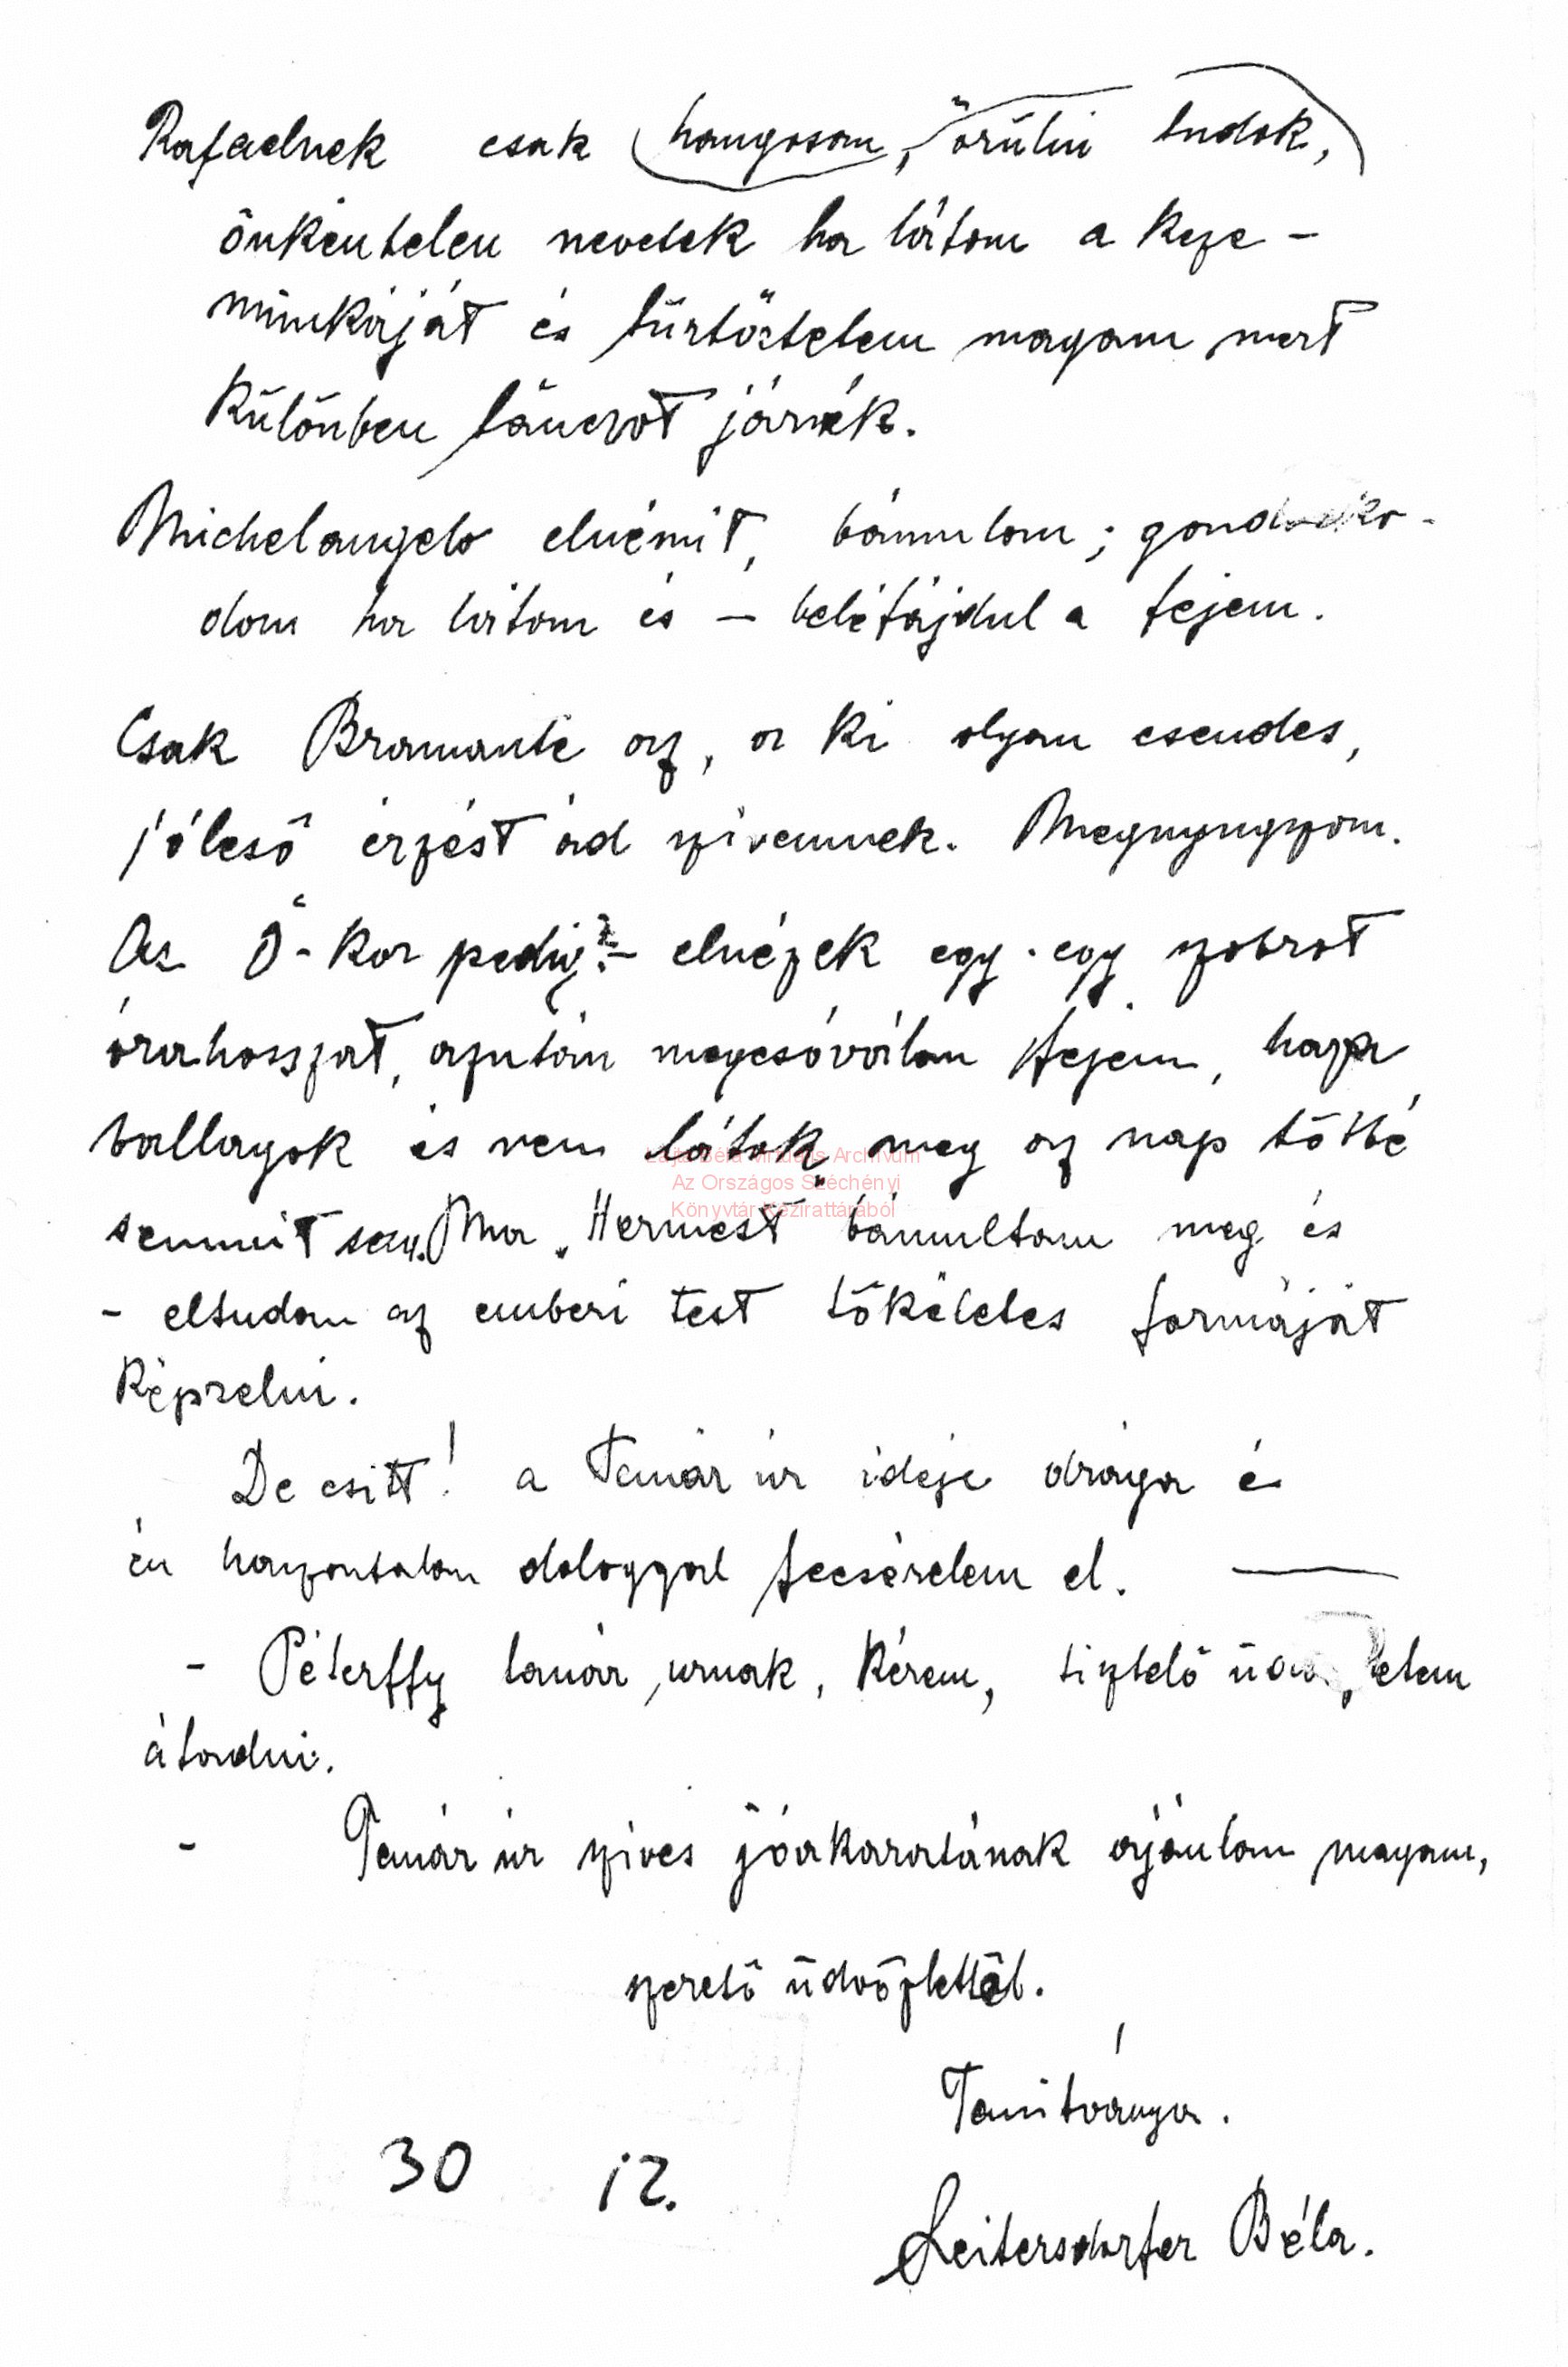 Rafaelnek csak hangosan, örülni tudok,
önkéntelen nevetek ha látom a keze-
munkáját és türtőztetem magam mert
különben tánczot járnék.
Michelangelo elnémit, bámulom; gondolko-
dom ha látom és – beléfájdul a fejem.
Csak Bramante az, a ki olyan csendes,
jóleső érzést ád szivemnek. Megnyugszom.
Az Ó-kor pedig? – elnézek egy-egy szobrot
órahosszat, azután megcsóválom fejem, haza
ballagok és nem látok meg az nap többé
semmit sem. Ma „Hermest” bámultam meg és
– eltudom az emberi test tökéletes formáját
képzelni.
De csitt! a Tanár úr ideje drága és
én haszontalan dologgal fecsérelem el. —
– Péterffy tanár urnak, kérem, tisztelő
átadni.
– Tanár úr szives jóakaratának ajánlom magam,
szerető üdvözlettel.
Tanitványa.
30 12.
Leitersdorfer Béla.
Lajta Béla Virtuális Archívum
Az Országos Széchényi
Könyvtár Kézirattárából